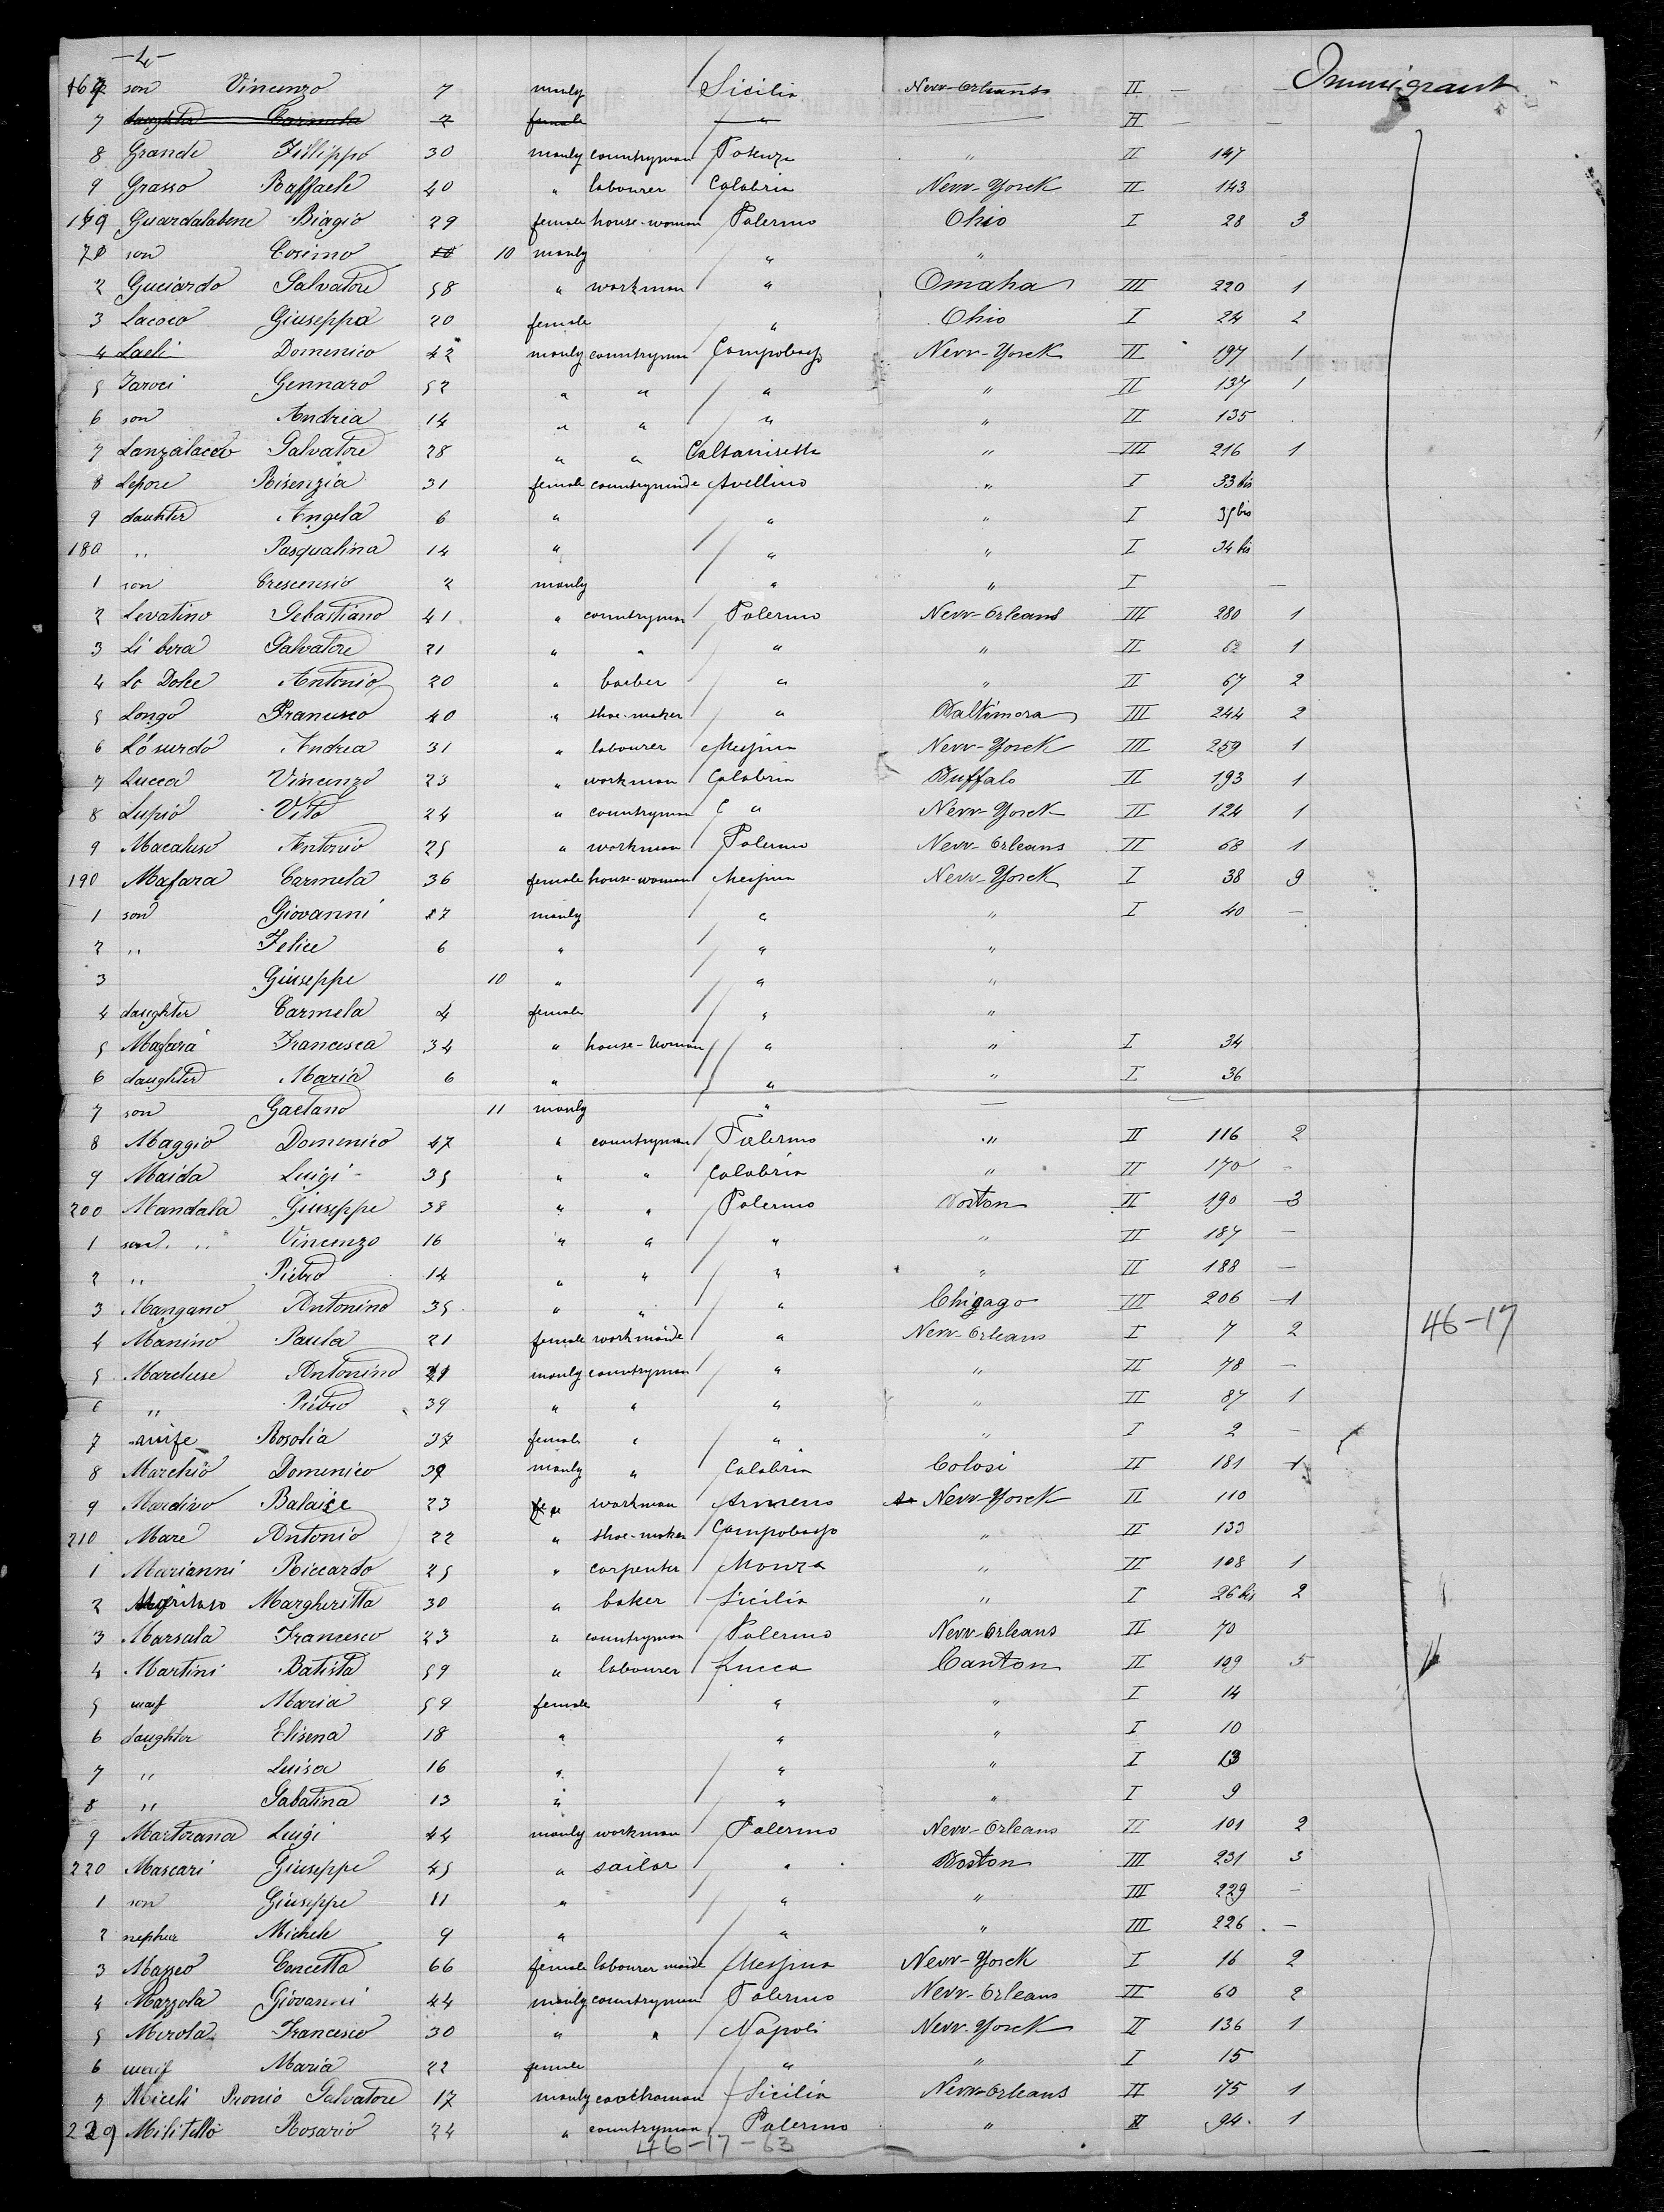 -4-
Immigrant
son Vincenzo 7 manly Sicilia New-Orleans II —
7 daughter Carmela 2 female " II — —
8 Grande Fillippo 30 manly countryman Potenza " II 147
9 Grasso Raffaele 40 " labourer Calabria New-Yorck II 143
Guardalabene Biagio 29 female house-woman Palermo Ohio I 28 3
son Cosimo 10 manly " "
2 Guciardo Salvatore 58 " workman " Omaha III 220 1
3 Lacoco Giuseppa 20 female " Ohio I 24 2
4 Laeli Domenico 42 manly countryman Campobasso New-Yorck II 197 1
5 Iaroci Gennaro 52 " " " " II 137 1
6 son Andria 14 " " " " II 135
7 Lanzalacco Salvatore 28 " " Caltanisetta " III 216 1
8 Lepore Risenzia 31 female countrymaide Avellino " I 33 bis
9 dauhter Angela 6 " " " I 35 bis
180 " Pasqualina 14 " " " I 34 bis
1 son Crescensio 2 manly " " I —
2 Levatino Sebastiano 41 " countryman Palermo New-Orleans III 280 1
3 Li bera Salvatore 21 " " " " II 62 1
4 Lo Dolce Antonio 20 " barber " " II 67 2
5 Longo Francesco 40 " shoe-maker " Baltimora III 244 2
6 Lo surdo Andrea 31 " labourer Messina New-Yorck III 259 1
7 Lucca Vincenzo 23 " workman Calabria Buffalo II 193 1
8 Lupio Vito 24 " countryman " New-Yorck II 124 1
9 Macaluso Antonio 25 " workman Palermo New-Orleans II 68 1
190 Mafara Carmela 36 female house-woman Messina New-Yorck I 38 9
1 son Giovanni manly " " I 40 —
2 " Felice 6 " " "
3 Giuseppe 10 " " "
4 daughter Carmela 4 female " "
5 Mafara Francesca 34 " house-Woman " " I 34
6 daughter Maria 6 " " " I 36
7 son Gaetano 11 manly " —
8 Maggio Domenico 47 " countryman Palermo " II 116 2
9 Maida Luigi 35 " " Calabria " II 170 -
200 Mandala Giuseppe 38 " " Palermo Boston II 190 3
1 son " Vincenzo 16 " " " " II 187 —
2 " Pietro 14 " " " " II 188 —
3 Mangano Antonino 35 " " " Chigago III 206 1
4 Manino Paula 21 female workmaide " New-Orleans I 7 2
46-17
5 Marchese Antonino manly countryman " " II 78 —
6 " Pietro 39 " " " " II 87 1
7 wife Rosolia 37 female " " " I 2 —
8 Marchiò Domenico 39 manly " Calabria Colosi II 181 1
9 Mardivo Balaise 23 " workman Armeno New-Yorck II 110
210 Mare Antonio 22 " shoe-maker Campobasso " II 133
1 Marianni Riccardo 25 " carpenter Monza " II 108 1
2 Margheritta 30 " baker Sicilia " I 26 bis 2
3 Marsala Francesco 23 " countryman Palermo New-Orleans II 70
4 Martini Batista 59 " labourer Lucca Canton II 109 5
5 waif Maria 59 female " " I 14
6 daughter Elisena 18 " " " I 10
7 " Luisa 16 " " " I 13
8 " Sabatina 13 " " " I 9
9 Martorana Luigi 44 manly workman Palermo New-Orleans II 101 2
220 Mascari Giuseppe 45 " sailor " Boston III 231 3
1 son Giuseppe 11 " " " III 229 —
2 nephew Michele 9 " " " III 226 —
3 Mazzeo Concetta 66 female labourer maide Messina New-Yorck I 16 2
4 Mazzola Giovanni 44 manly countryman Palermo New-Orleans II 60 2
5 Merola Francesco 30 " " Napoli New-Yorck II 136 1
6 waif Maria 22 female " " I 15
7 Miceli Pronio Salvatore 17 manly coachoman Sicilia New-Orleans II 75 1
229 Militello Rosario 24 " countryman Palermo " II 94 1
46-17-63